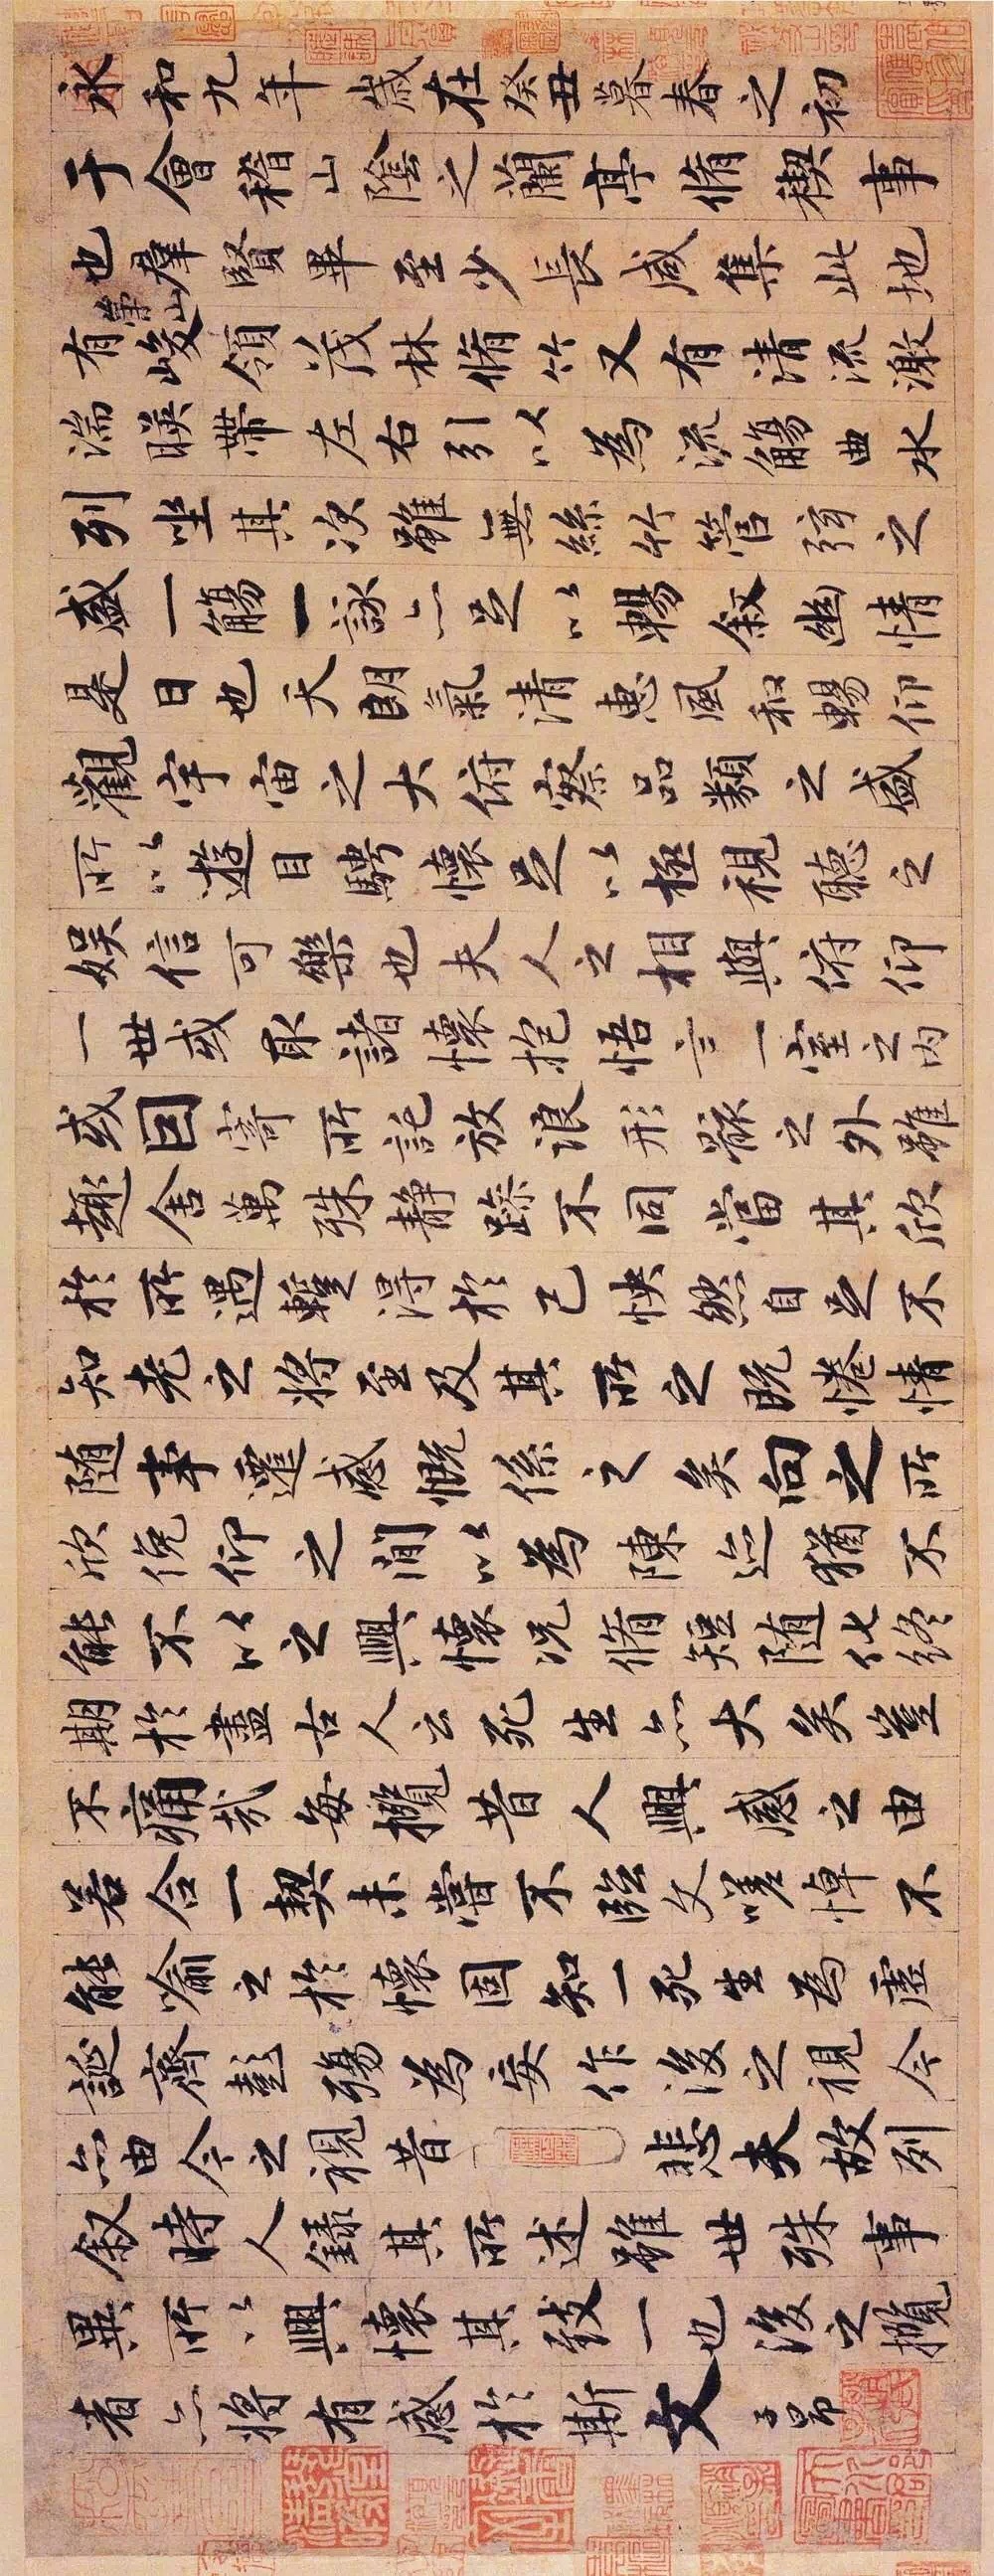 永和九年歲在癸丑暮春之初
于會稽山陰之蘭亭脩稧事
也羣賢畢至少長咸集此地
有崇山峻領茂林脩竹又有清流激
湍暎帶左右引以為流觴曲水
列坐其次雖無絲竹管弦之
盛一觴一詠亦足以暢敘幽情
是日也天朗氣清惠風和暢仰
觀宇宙之大俯察品類之盛
所以遊目騁懷足以極視聽之
娛信可樂也夫人之相與俯仰
一世或取諸懷抱悟言一室之內
或因寄所託放浪形骸之外雖
趣舍萬殊靜躁不同當其欣
於所遇暫得於己怏然自足不
知老之將至及其所之既惓情
隨事遷感慨係之矣向之所
欣俛仰之間以為陳迹猶不
能不以之興懷況脩短隨化終
期於盡古人云死生亦大矣豈
不痛哉每攬昔人興感之由
若合一契未嘗不臨文嗟悼不
能喻之於懷固知一死生為虛
誕齊彭殤為妄作後之視今
亦由今之視昔悲夫故列
敘時人錄其所述雖世殊事
異所以興懷其致一也後之攬
者亦將有感於斯文
子昂